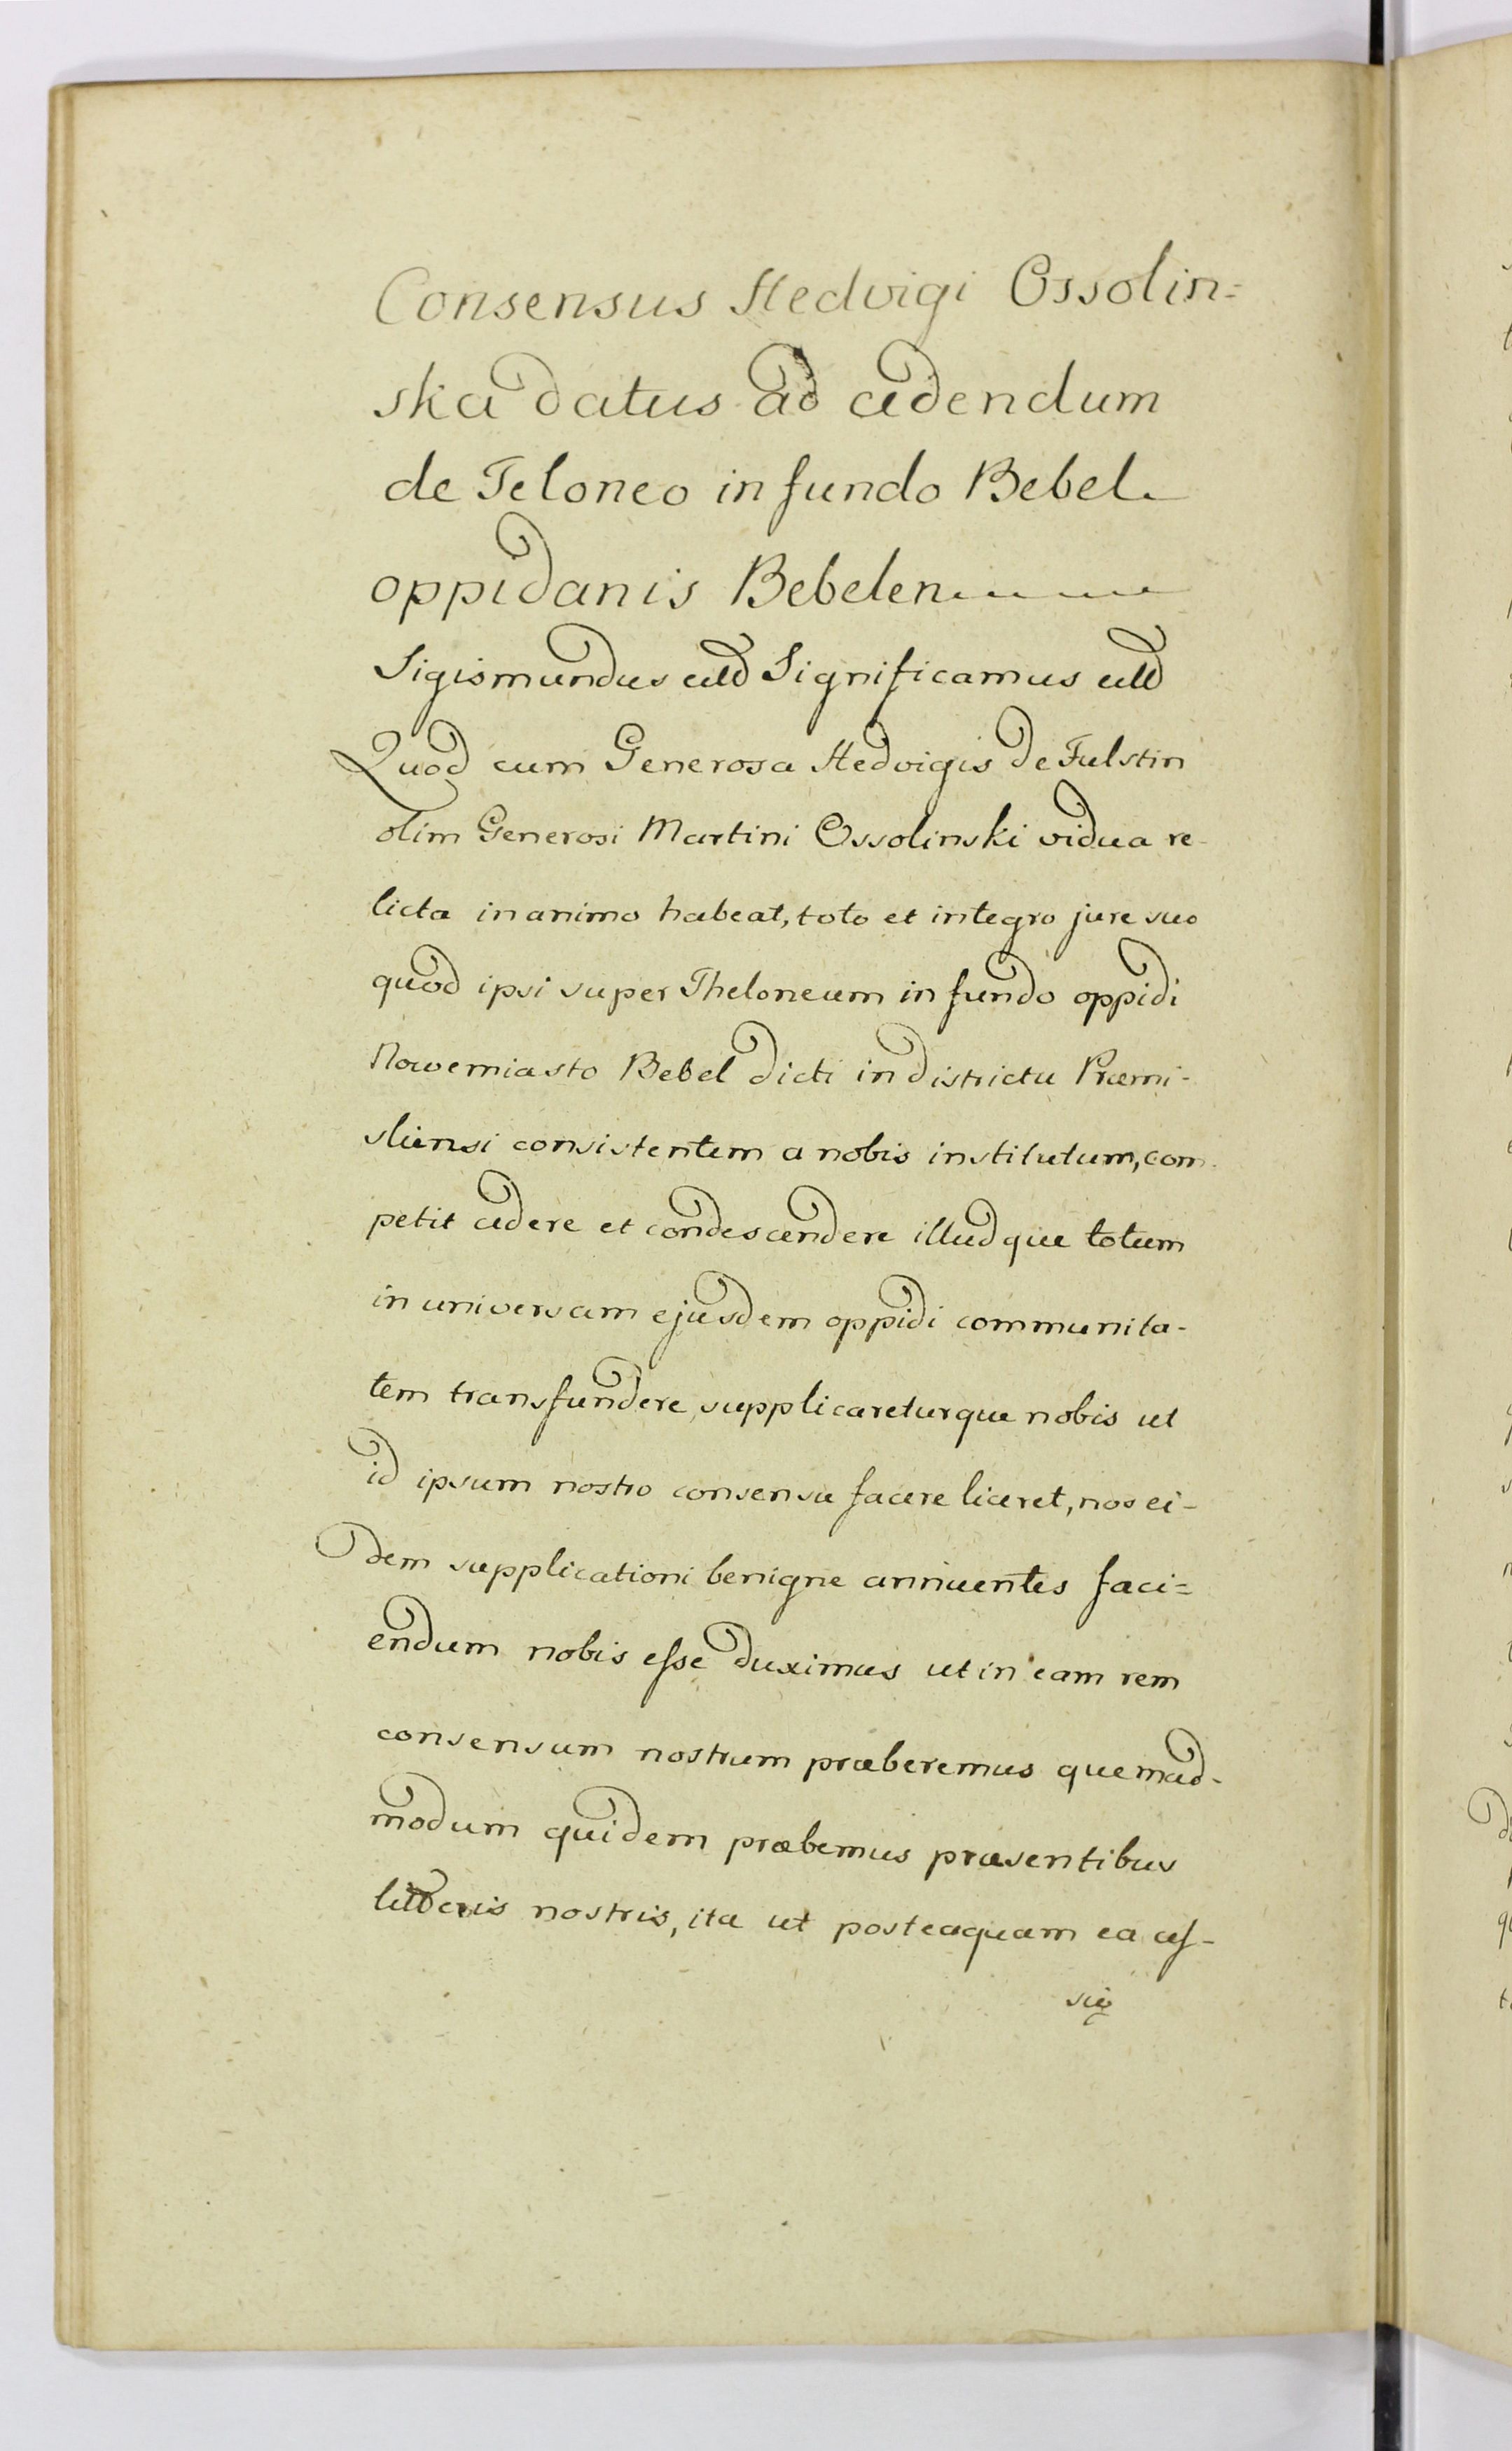 Consensus Hedvigi Ossolin=
ska datus ad cedendum
de Teloneo in fundo Bebel
oppidanis Bebelen
Sigismundus Significamus
Quod cum Generosa Hedvigis de Fulstin
olim Generosi Martini Ossolinski vidua re-
licta in animo habeat, toto et integro jure suo
quod ipsi super Theloneum in fundo oppidi
Nowemiasto Bebel dicti in districtu Præmi-
sliensi consistentem a nobis institutum, com-
petit cedere et condescendere illudque totum
in universam ejusdem oppidi communita-
tem transfundere, supplicareturque nobis ut
id ipsum nostro consensu facere liceret, nos ei-
dem supplicationi benigne annuentes faci=
endum nobis esse duximus ut in eam rem
consensum nostrum præberemus quemad-
modum quidem præbemus præsentibus
litteris nostris, ita ut posteaquam ea ces-